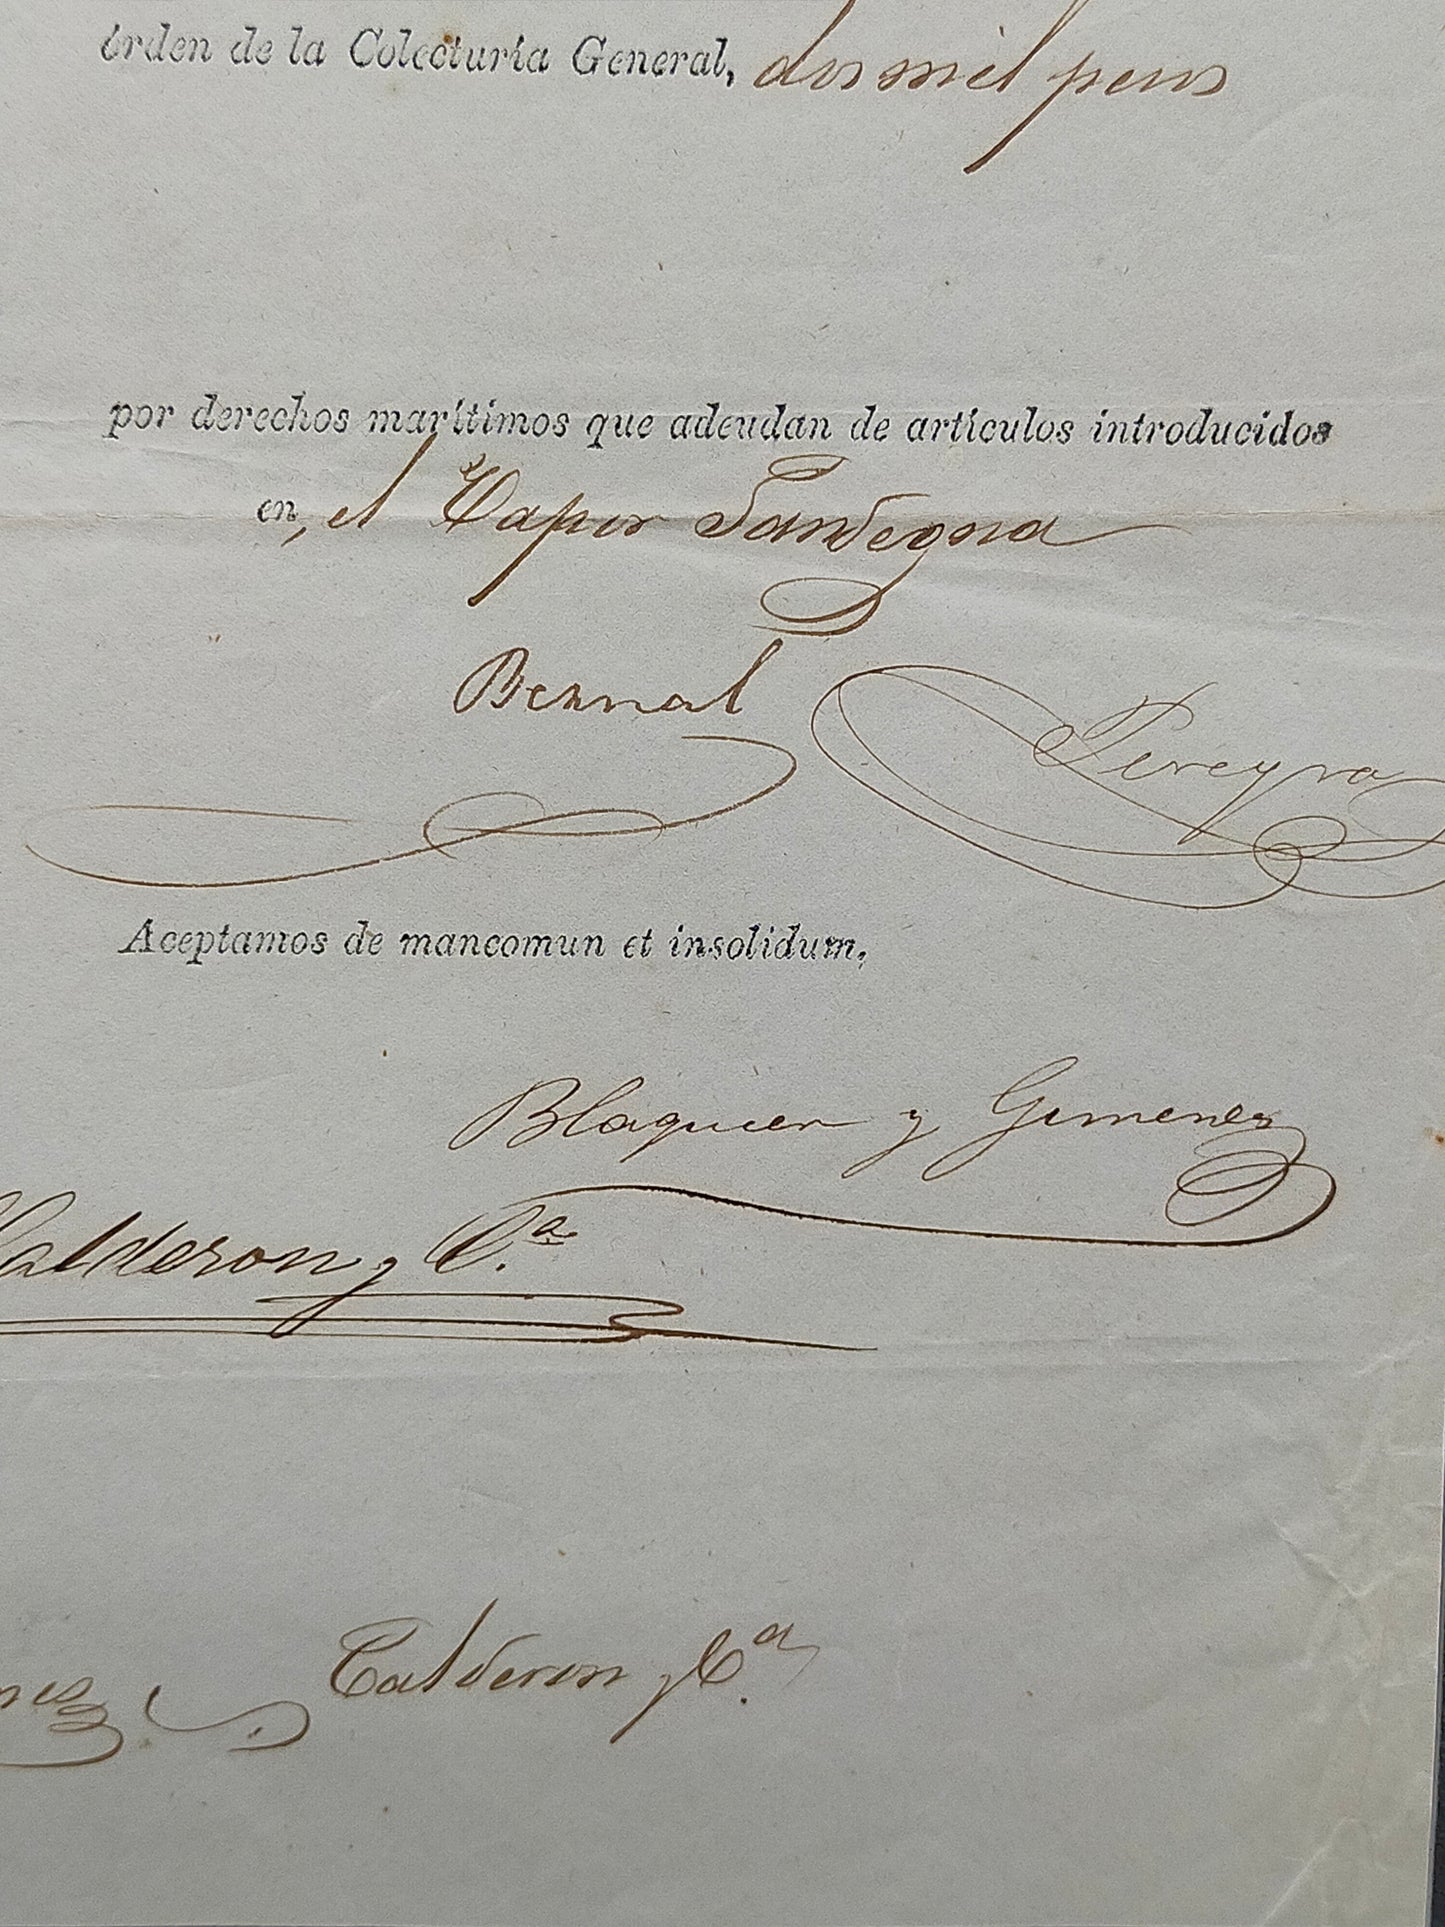 órden de la Colecturía General, dos mil pesos
por derechos marítimos que adeudan de artículos introducidos
en, el Vapor Sardegna
Bernal Pereyra
Aceptamos de mancomun et insolidum,
Blaquier y Gimenez
Calderon y C.ª
Calderon y C.ª